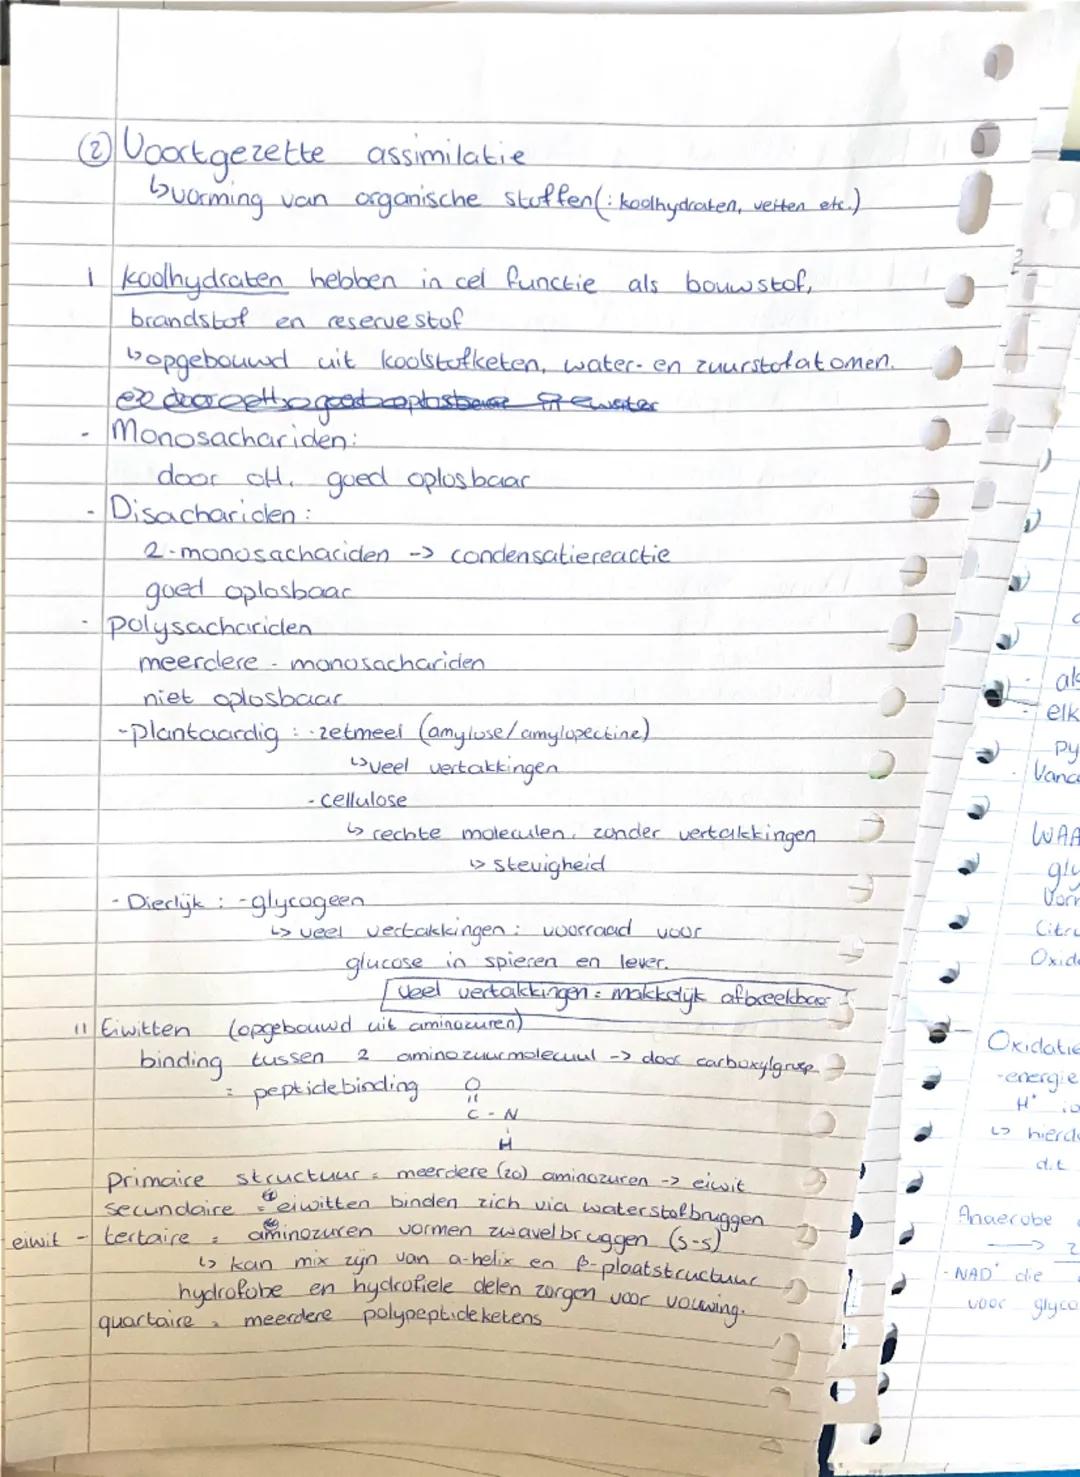 ② Voortgezette assimilatie
↳ vorming van organische stoffen (: koolhydraten, vetten etc.)
I koolhydraten hebben in cel functie als bouwstof,
brandstof en reservestof
↳ opgebouwd uit koolstofketen, water- en zuurstofatomen.
- Monosachariden:
door OH, goed oplosbaar
- Disachariden:
2-monosachariden -> condensatiereactie
goed oplosbaar
- polysachariden
meerdere - monosachariden
niet oplosbaar
- plantaardig : - zetmeel (amylose/amylopectine)
↳ veel vertakkingen
- cellulose
↳ rechte moleculen, zonder vertakkingen
↳ stevigheid
- Dierlijk : - glycogeen
↳ veel vertakkingen : voorraad voor
glucose in spieren en lever.
veel vertakkingen = makkelijk afbreekbaar
II Eiwitten (opgebouwd uit aminozuren)
binding tussen 2 aminozuurmolecuul -> door carboxylgroep
= peptidebinding O
C - N
H
primaire structuur = meerdere (20) aminozuren -> eiwit
secundaire = eiwitten binden zich via waterstofbruggen
eiwit - tertaire = aminozuren vormen zwavelbruggen (s-s)
↳ kan mix zijn van a-helix en β-plaatstructuur
hydrofobe en hydrofiele delen zorgen voor vouwing.
quartaire = meerdere polypeptideketens
als
elk
py
Vana
WAA
gly
Vorm
Citru
Oxida
Oxidatie
- energie
H⁺ io
↳ hierdo
d.t
Anaerobe
-> 2
- NAD⁺ die
voor glyco